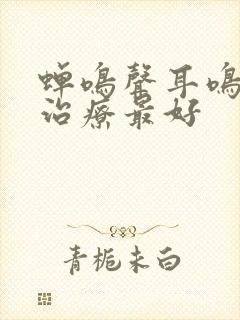 蝉鳴聲耳鳴
治療最好
青栀未白